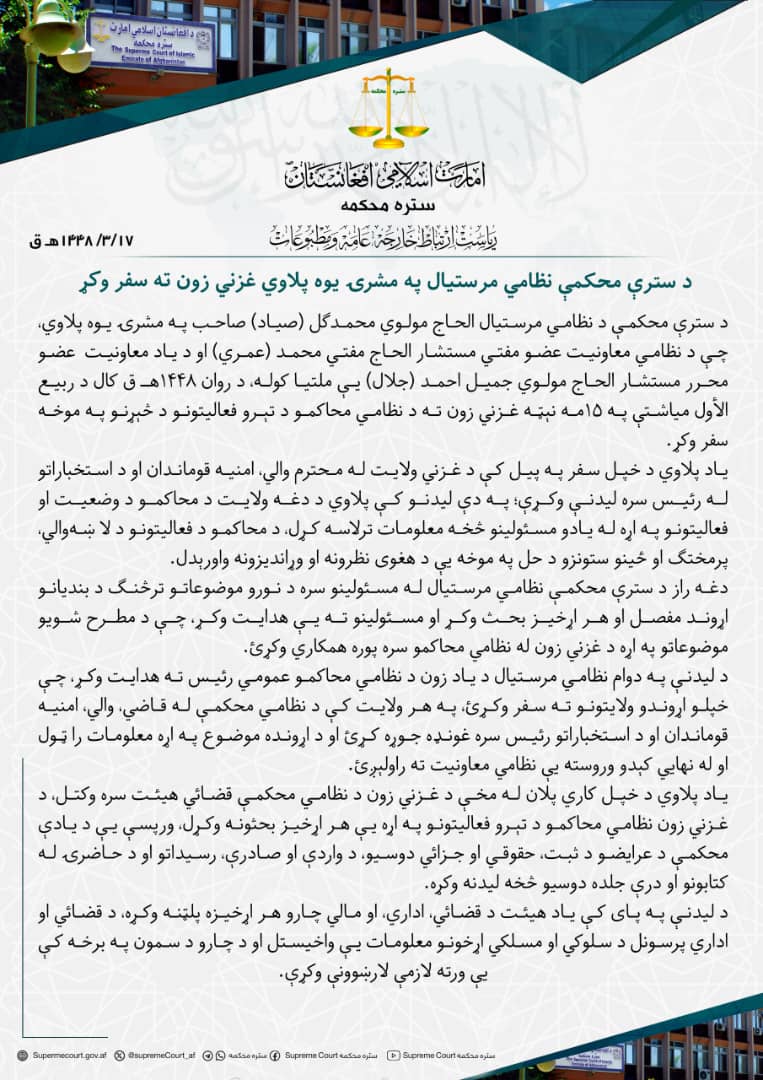 د افغانستان اسلامي امارت
ستره محکمه
The Supreme Court of Islamic
Emirate of Afghanistan
ستره محکمه
امارت اسلامی افغانستان
ستره محکمه
ریاست ارتباط خارجه، عامه و مطبوعات
۱۴۴۸/۳/۱۷هـ ق
د سترې محکمې نظامي مرستیال په مشرۍ یوه پلاوي غزني زون ته سفر وکړ
د سترې محکمې د نظامي مرستیال الحاج مولوي محمدګل (صیاد) صاحب په مشرۍ یوه پلاوي،
چې د نظامي معاونیت عضو مفتي مستشار الحاج مفتي محمد (عمري) او د یاد معاونیت عضو
محرر مستشار الحاج مولوي جمیل احمد (جلال) یې ملتیا کوله، د روان ۱۴۴۸هـ ق کال د ربیع
الأول میاشتې په ۱۵مه نېټه غزني زون ته د نظامي محاکمو د تېرو فعالیتونو د څېړنو په موخه
سفر وکړ.
یاد پلاوي د خپل سفر په پیل کې د غزني ولایت له محترم والي، امنیه قوماندان او د استخباراتو
له رئیس سره لیدنې وکړې؛ په دې لیدنو کې پلاوي د دغه ولایت د محاکمو د وضعیت او
فعالیتونو په اړه له یادو مسئولینو څخه معلومات ترلاسه کړل، د محاکمو د فعالیتونو د لا ښه‌والي،
پرمختګ او ځینو ستونزو د حل په موخه یې د هغوی نظرونه او وړاندیزونه واورېدل.
دغه راز د سترې محکمې نظامي مرستیال له مسئولینو سره د نورو موضوعاتو ترڅنګ د بندیانو
اړوند مفصل او هر اړخیز بحث وکړ او مسئولینو ته یې هدایت وکړ، چې د مطرح شویو
موضوعاتو په اړه د غزني زون له نظامي محاکمو سره پوره همکاري وکړئ.
د لیدنې په دوام نظامي مرستیال د یاد زون د نظامي محاکمو عمومي رئیس ته هدایت وکړ، چې
خپلو اړوندو ولایتونو ته سفر وکړئ، په هر ولایت کې د نظامي محکمې له قاضي، والي، امنیه
قوماندان او د استخباراتو رئیس سره غونډه جوړه کړئ او د اړونده موضوع په اړه معلومات را ټول
او له نهایي کېدو وروسته یې نظامي معاونیت ته راولېږئ.
یاد پلاوي د خپل کاري پلان له مخې د غزني زون د نظامي محکمې قضائي هیئت سره وکتل، د
غزني زون نظامي محاکمو د تېرو فعالیتونو په اړه یې هر اړخیز بحثونه وکړل، ورپسې یې د یادې
محکمې د عرایضو د ثبت، حقوقي او جزائي دوسیو، د واردې او صادرې، رسیداتو او د حاضرۍ له
کتابونو او درې جلده دوسیو څخه لیدنه وکړه.
د لیدنې په پای کې یاد هیئت د قضائي، اداري، او مالي چارو هر اړخیزه پلټنه وکړه، د قضائي او
اداري پرسونل د سلوکي او مسلکي اړخونو معلومات یې واخیستل او د چارو د سمون په برخه کې
یې ورته لازمې لارښوونې وکړې.
Supermecourt.gov.af @supremeCourt_af ستره محکمه Supreme Court ستره محکمه Supreme Court ستره محکمه